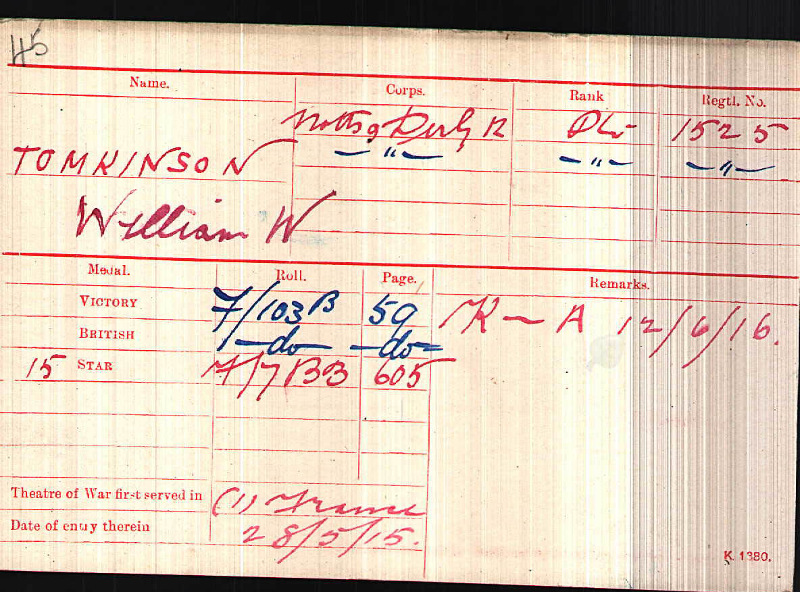 45
Name. Corps. Rank Regtl. No.
Notts & Derby R Pte 1525
TOMKINSON —"— —"— —"—
William W
Medal. Roll. Page. Remarks.
VICTORY F/103B 59 K — A 12/6/16.
BRITISH —do— —do—
15 STAR F/7BB 605
Theatre of War first served in (1) France
Date of entry therein 28/5/15.
K. 1380.